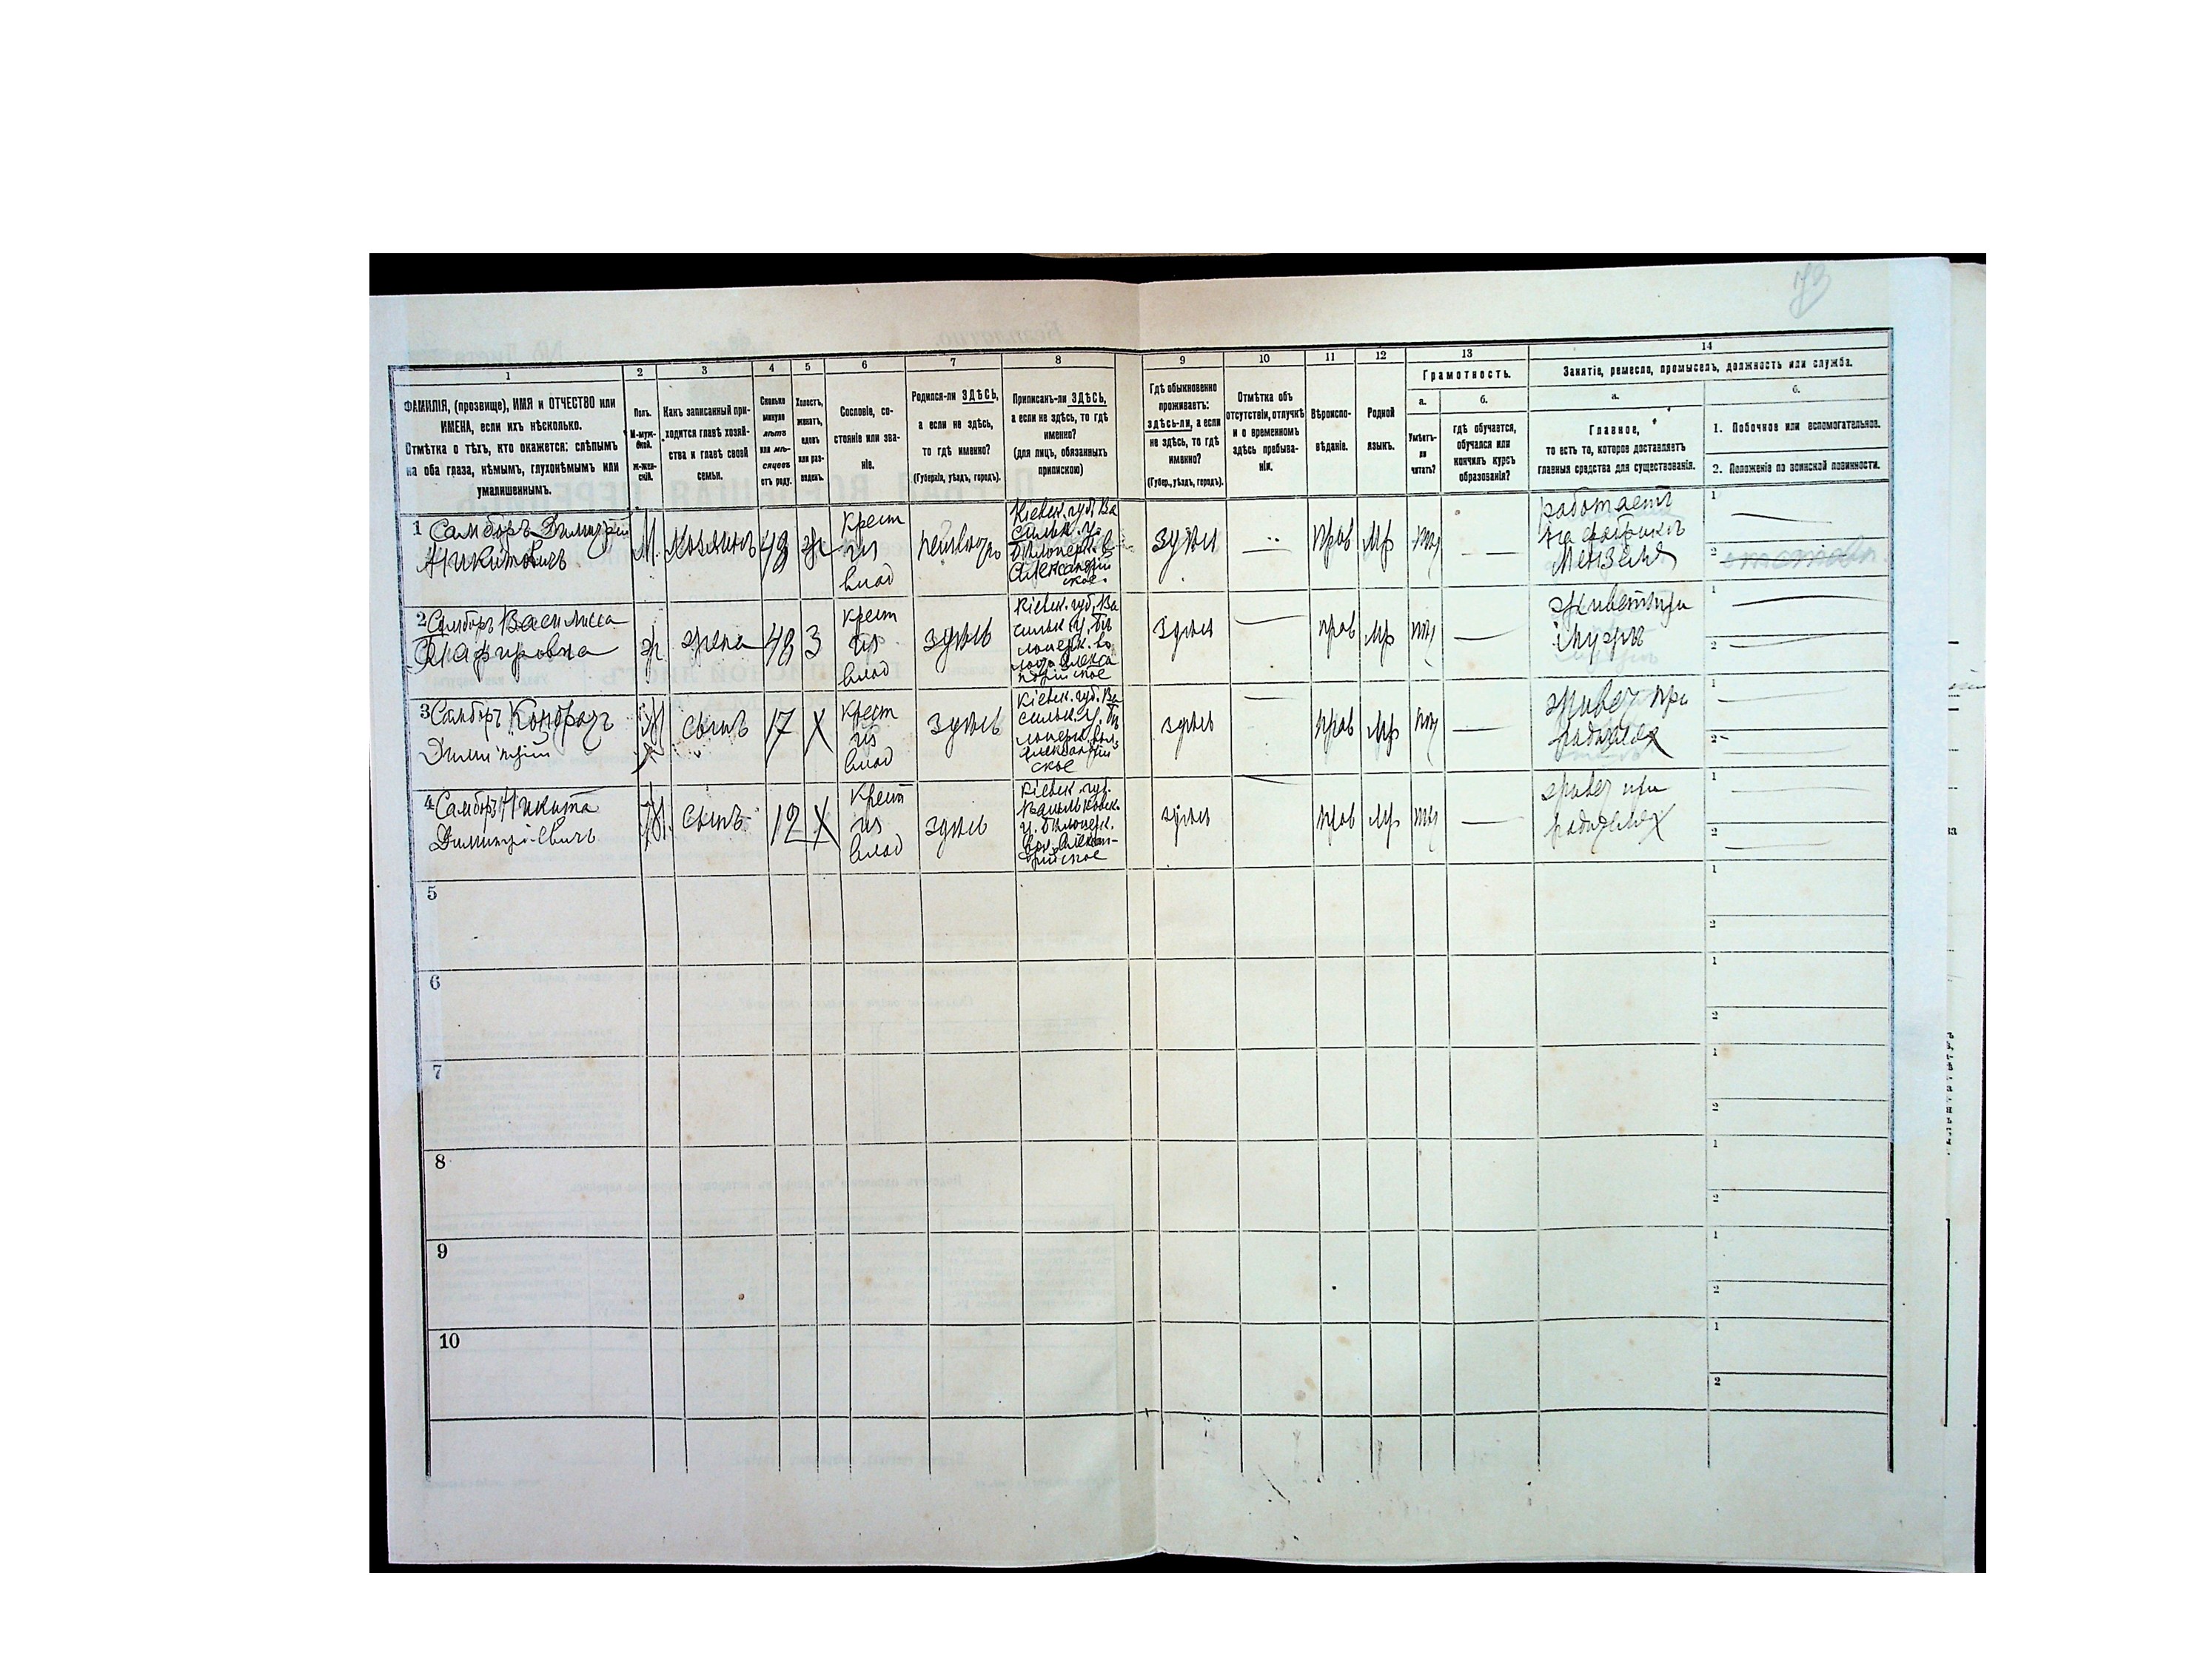 1
2
3
4
5
6
7
8
9
10
11
12
13
14
ФАМИЛІЯ, (прозвище), ИМЯ и ОТЧЕСТВО или
ИМЕНА, если ихъ нѣсколько.
Отмѣтка о тѣхъ, кто окажется: слѣпымъ
на оба глаза, нѣмымъ, глухонѣмымъ или
умалишеннымъ.
Полъ.
М-муж-
ской.
Ж-жен-
скій.
Какъ записанный при-
ходится главѣ хозяй-
ства и главѣ своей
семьи.
Сколько
минуло
лѣтъ
или мѣ-
сяцевъ
отъ роду.
Холостъ,
женатъ,
вдовъ
или раз-
веденъ.
Сословіе, со-
стояніе или зва-
ніе.
Родился-ли ЗДѢСЬ,
а если не здѣсь,
то гдѣ именно?
(Губернія, уѣздъ, городъ).
Приписанъ-ли ЗДѢСЬ,
а если не здѣсь, то гдѣ
именно?
(для лицъ, обязанныхъ
припискою)
Гдѣ обыкновенно
проживаетъ:
здѣсь-ли, а если
не здѣсь, то гдѣ
именно?
(Губер., уѣздъ, городъ).
Отмѣтка объ
отсутствіи, отлучкѣ
и о временномъ
здѣсь пребыва-
ніи.
Вѣроиспо-
вѣданіе.
Родной
языкъ.
Грамотность.
а.
Умѣетъ-
ли
читать?
б.
гдѣ обучается,
обучался или
кончилъ курсъ
образованія?
Занятіе, ремесло, промыселъ, должность или служба.
а.
Главное,
то есть то, которое доставляетъ
главныя средства для существованія.
б.
1. Побочное или вспомогательное.
2. Положеніе по воинской повинности.
1 Самборъ Димитрій
Никитовичъ
М.
Хозяинъ
48
ж
Крест
из
влад
Кіевск. губ, Ва
сильк. у.
Бѣлоцерк. в
Александрій
ское.
здѣсь
—
Прав
Мр
—
работаетъ
на фабрикѣ
Мензеля
1
2
2 Самборъ Василиса
ж
жена
48
З
крест
из
влад
здѣсь
Кіевск. губ, Ва
сильк. у. Бѣ
лоцерк. во
лост. Алекса
ндрійское
здѣсь
—
прав
Мр
—
1
2
3 Самборъ Кондрат
сынъ
17
Х
Крест
из
влад
здѣсь
Кіевск. губ. Ва
сильк. у. Бѣ
лоцерк. вол.
Александрій
ское
здѣсь
—
прав
Мр
—
живет при
1
2
4 Самборъ Никита
Димитріевичъ
сынъ
12
Х
Крест
из
влад
здѣсь
Кіевск. губ.
Васильковск.
у. Бѣлоцерк.
вол. Алексан-
дрійское
здѣсь
прав
Мр
—
живет при
1
2
5
1
2
6
1
2
7
1
2
8
1
2
9
1
2
10
1
2